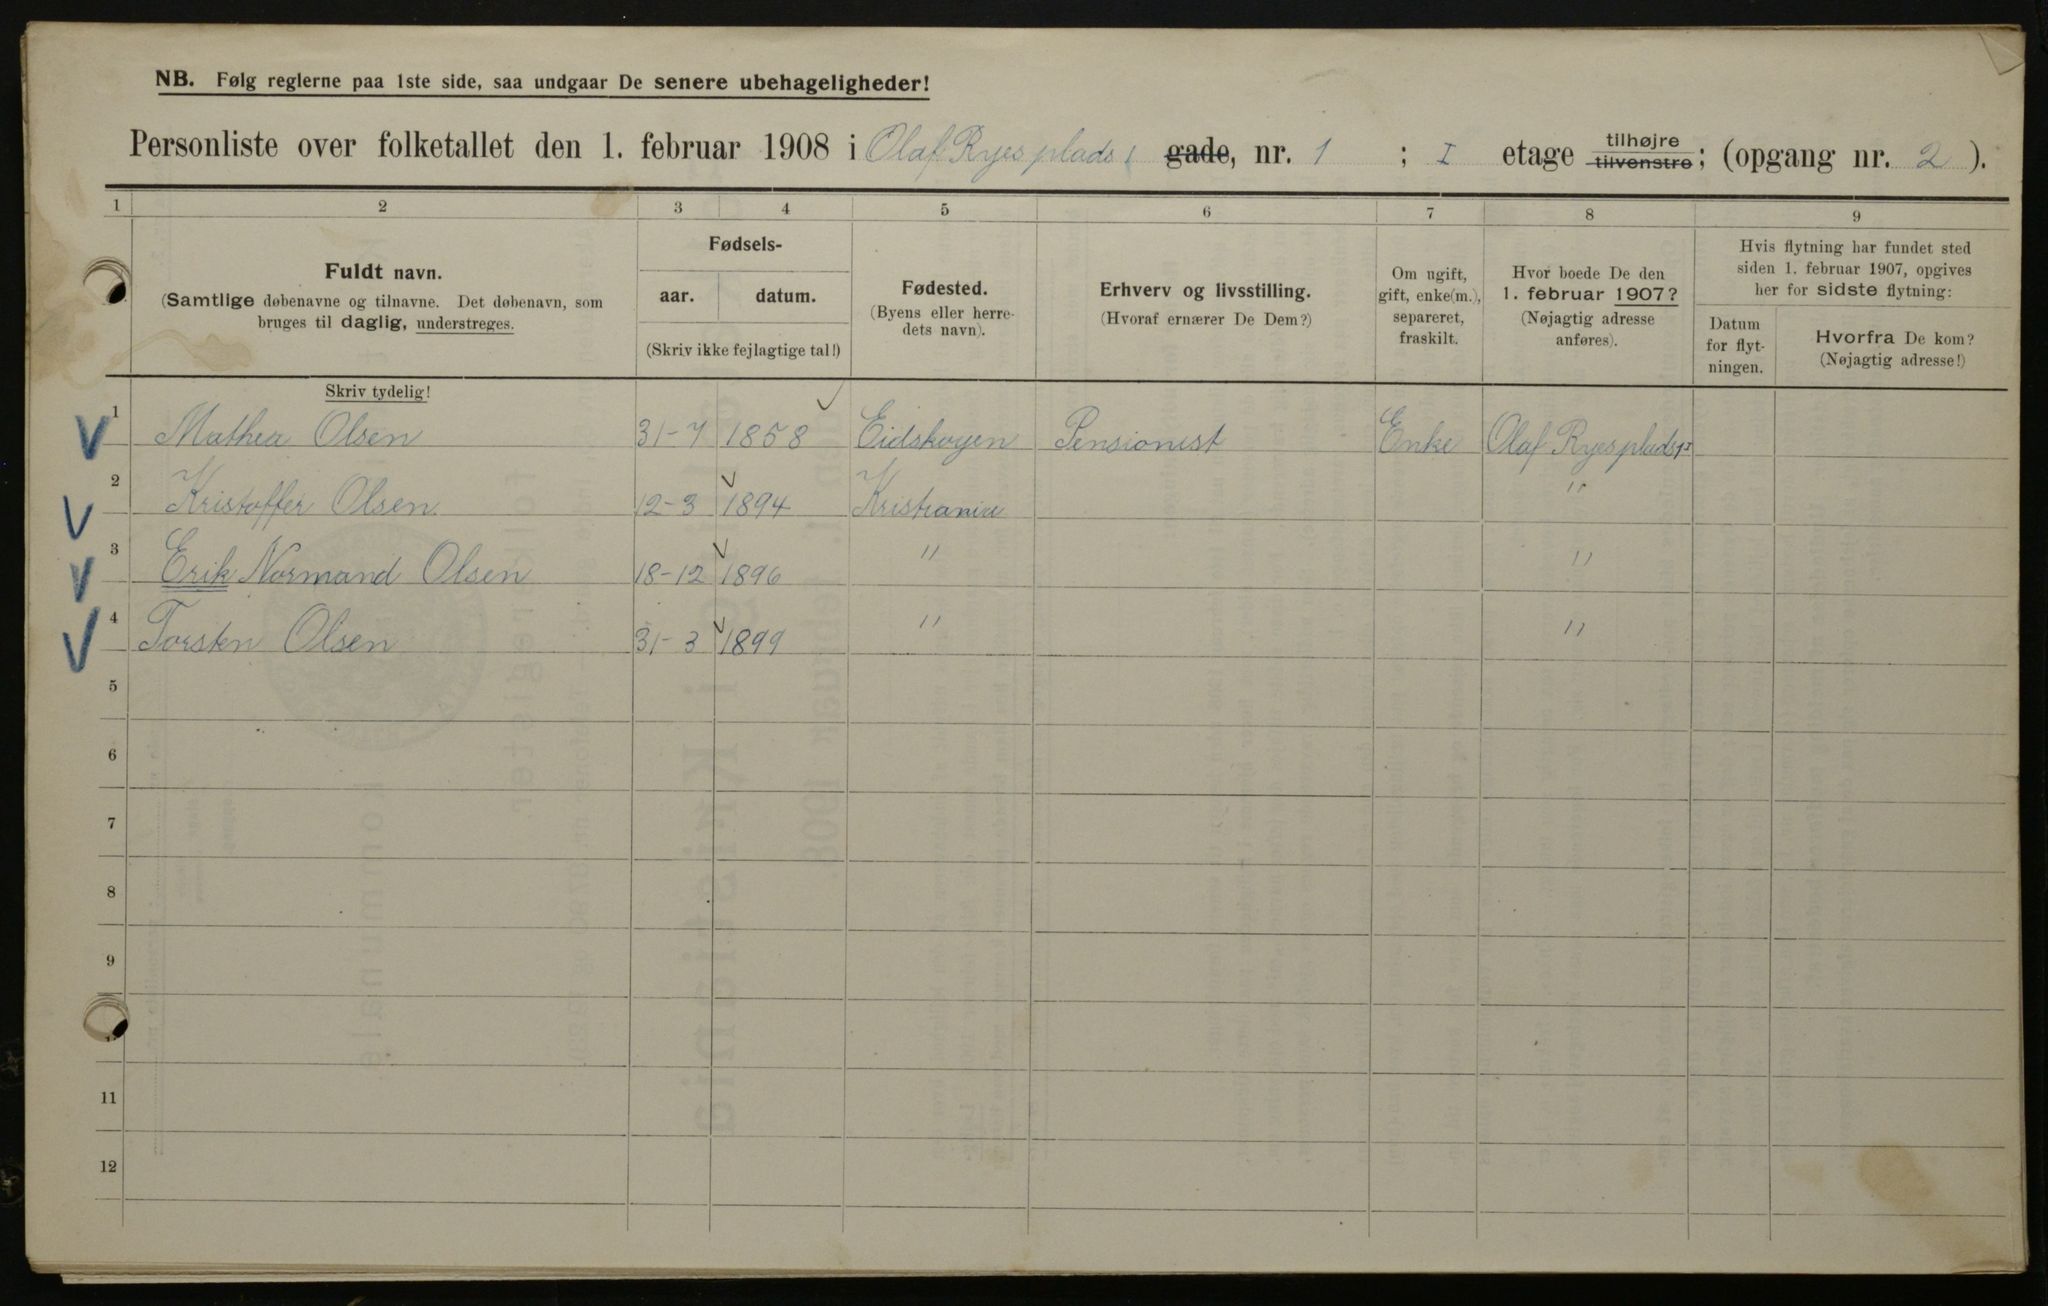 NB. Følg reglerne paa 1ste side, saa undgaar De senere ubehageligheder!
Personliste over folketallet den 1. februar 1908 i Olaf Ryes plads 1 gade, nr. 1 ; I etage tilhøjre tilvenstre; (opgang nr. 2 ).
1 2 3 4 5 6 7 8 9
Fuldt navn.
(Samtlige døbenavne og tilnavne. Det døbenavn, som
bruges til daglig, understreges.
Skriv tydelig!
Fødsels-
aar. datum.
(Skriv ikke fejlagtige tal!)
Fødested.
(Byens eller herre-
dets navn).
Erhverv og livsstilling.
(Hvoraf ernærer De Dem?)
Om ugift,
gift, enke(m.),
separeret,
fraskilt.
Hvor boede De den
1. februar 1907?
(Nøjagtig adresse
anføres).
Hvis flytning har fundet sted
siden 1. februar 1907, opgives
her for sidste flytning:
Datum
for flyt-
ningen.
Hvorfra De kom?
(Nøjagtig adresse!)
1 Mathea Olsen 31-7 1858 Eidskogen Pensionist Enke Olaf Ryes plads 1 I
2 Kristoffer Olsen 12-3 1894 Kristiania "
3 Erik Normand Olsen 18-12 1896 " "
4 Torsten Olsen 31-3 1899 " "
5
6
7
8
9
11
12